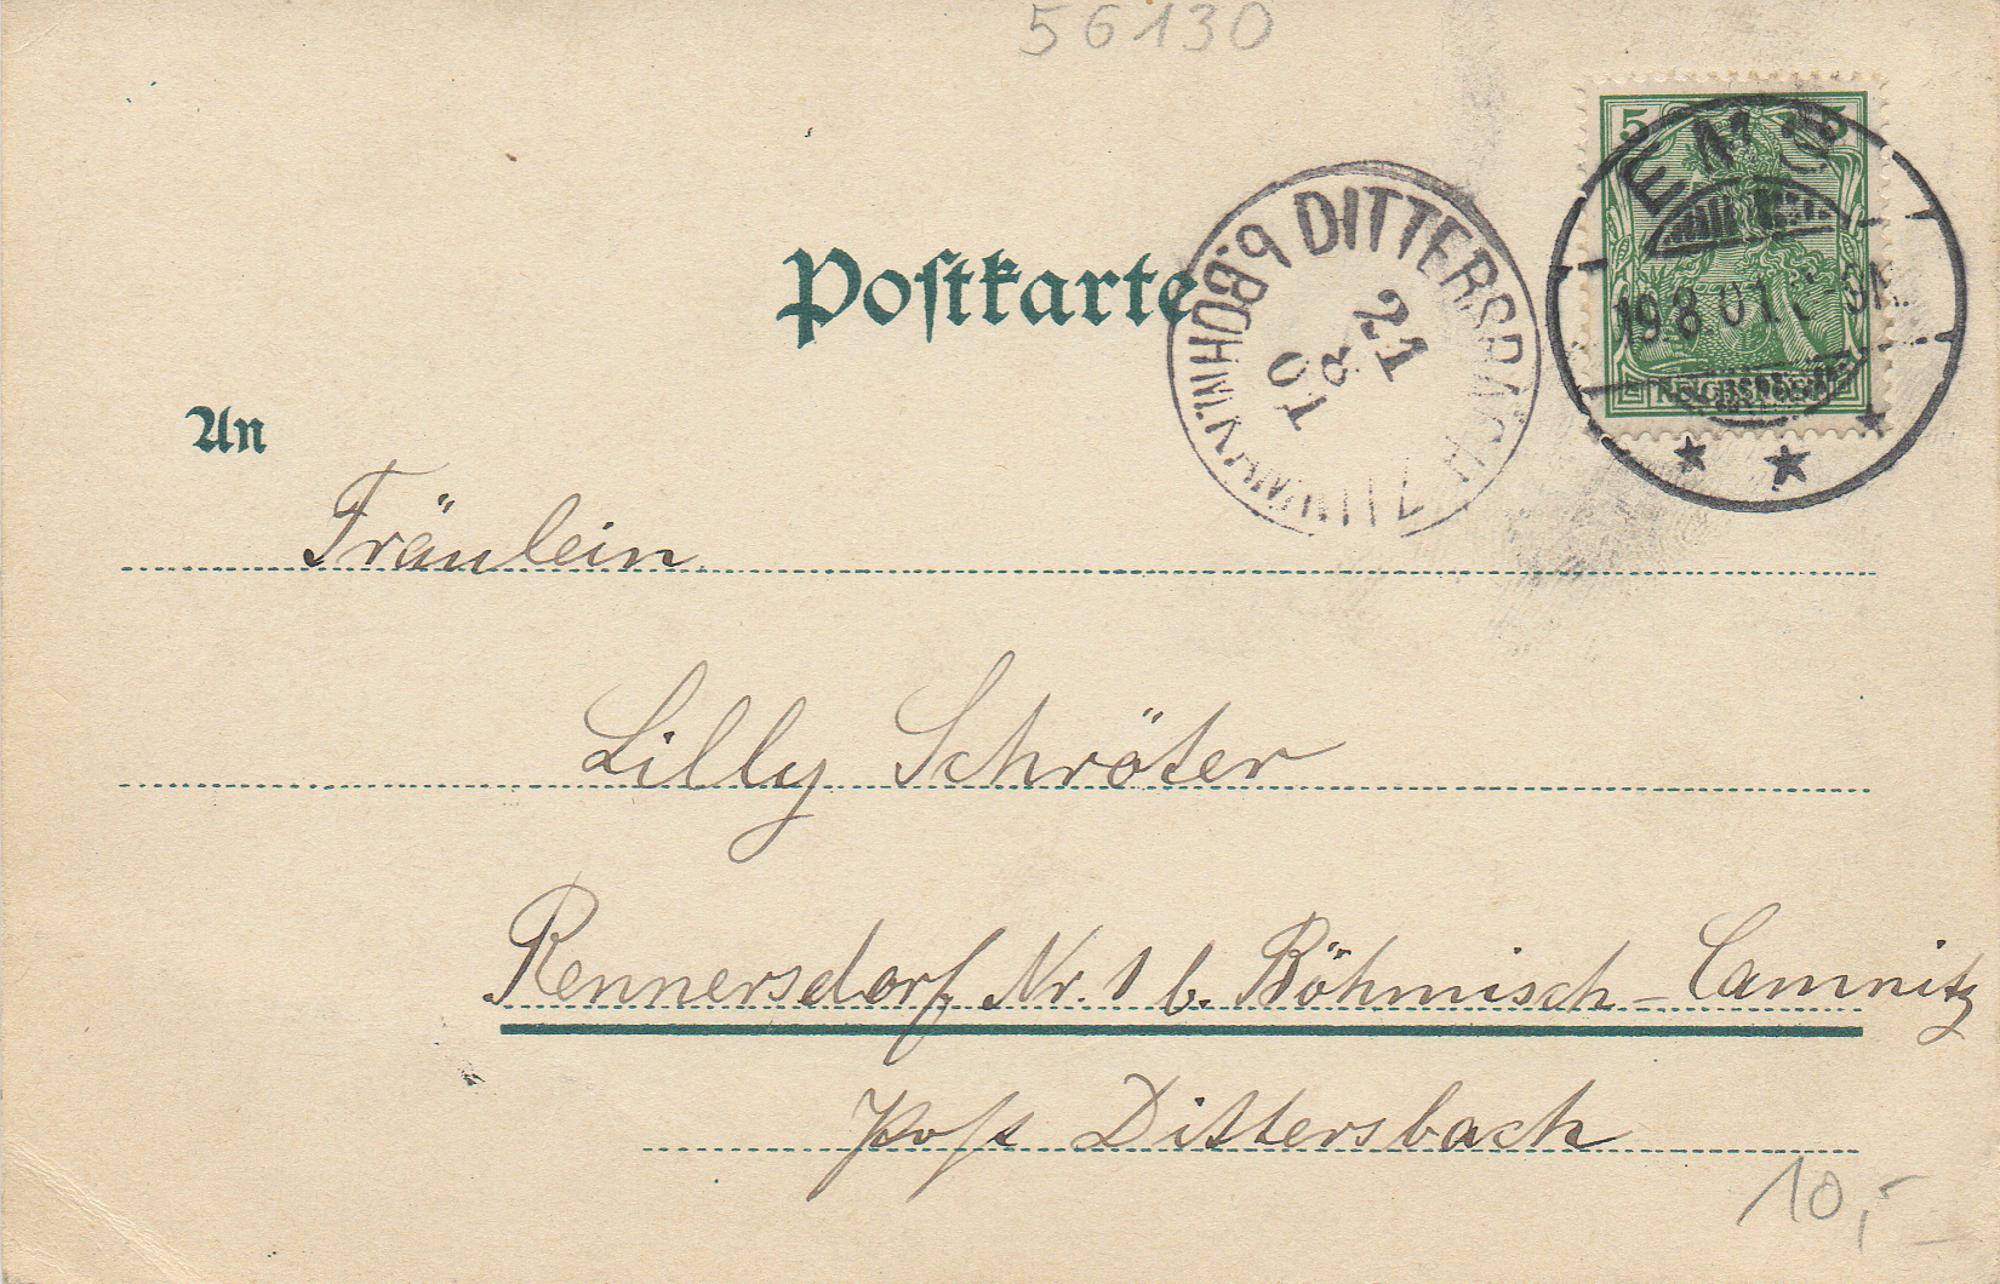 56130
5 5
EMS
19.8.01
REICHSPOST
DITTERSBACH b. BÖHM.
21
8
01
Postkarte
An
Fräulein
Lilly Schröter
Rennersdorf Nr. 1 b. Böhmisch-Camnitz
Post Dittersbach
10,-